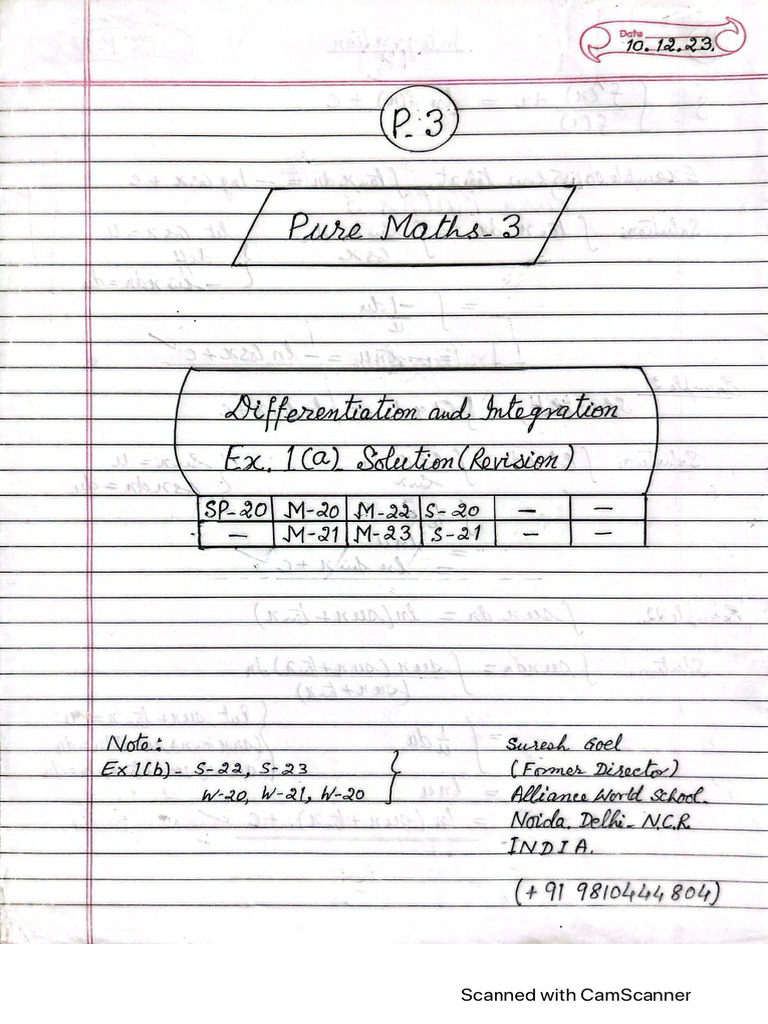 Date 10.12.23.
P-3
Pure Maths-3
Differentiation and Integration
Ex. 1(a) Solution (Revision)
SP-20 M-20 M-22 S-20 – –
– M-21 M-23 S-21 – –
Note:
Ex 1(b) - S-22, S-23
W-20, W-21, W-20
Suresh Goel
(Former Director)
Alliance World School.
Noida. Delhi- N.C.R
INDIA.
(+91 9810444804)
Scanned with CamScanner